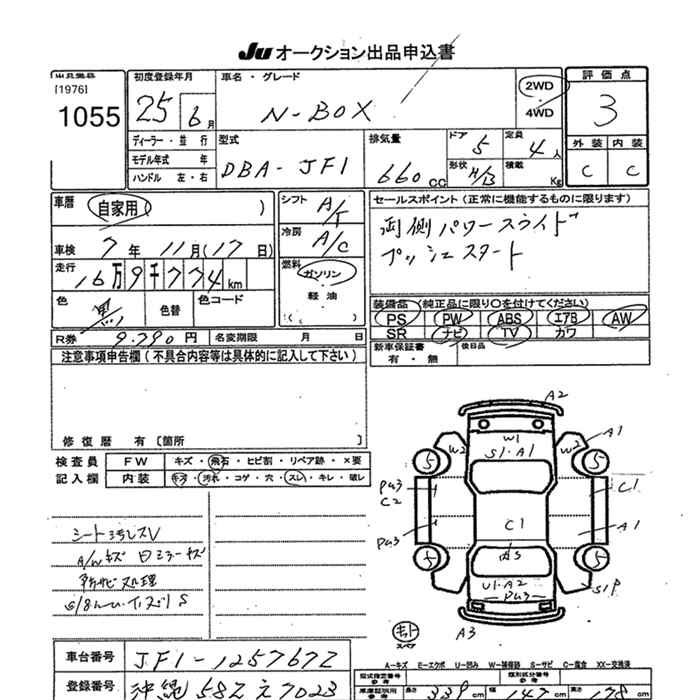 Ju オークション出品申込書
[1976]
1055
初度登録年月
25 6月
車名・グレード
N-BOX
2WD
4WD
評価点
3
ディーラー・並行
モデル年式 年
ハンドル 左・右
型式
DBA-JF1
排気量
660 cc
ドア 5
定員 4人
形状 H/B
積載 Kg
外装 内装
C C
車歴 自家用 ( )
車検 7年 11月(17日)
走行 16万9千774km
色 黒 色替 色コード
シフト A/T
冷房 A/C
燃料 ガソリン
軽油
( )
セールスポイント(正常に機能するものに限ります)
両側パワースライド
プッシュスタート
装備品(純正品に限り○を付けてください)
PS PW ABS エアB AW
SR ナビ TV カワ
R券 9,790円 名変期限 月 日
新車保証書 有・無
後日品
注意事項申告欄(不具合内容等は具体的に記入して下さい)
修復歴 有〔箇所 〕
検査員 FW キズ・飛石・ヒビ割・リペア跡・×要
記入欄 内装 キズ・汚れ・コゲ・穴・スレ・キレ・破レ
シート汚レスレV
A/Wキズ 日ミラーキズ
A2
W1
S1・A1
W2
W2
A1
5
5
Pu3
C2
C1
Pu3
C1
A1
AS
5
5
U1・A2
Pu3
S1P
A3
キット
スペア
A-キズ E-エクボ U-凹み W-補修跡 S-サビ C-腐食 XX-交換済
車台番号 JF1-1257672
登録番号 沖縄 582 え 7023
型式指定番号
参考
類別区分番号
参考
長さ 339cm 幅 147cm 高 178cm